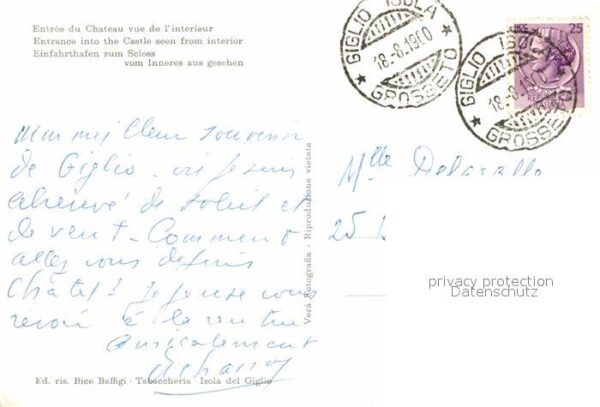 Entrée du Chateau vue de l'interieur
Entrance into the Castle seen from interior
Einfahrthafen zum Scloss
vom Inneres aus gesehen
GIGLIO ISOLA
18-8.1960
GROSSETO
GIGLIO ISOLA
18-8.1960
GROSSETO
25
Mon meilleur souvenir
de Giglio - où je suis
abreuvé de soleil et
de vent - Comment
allez vous depuis
Châtel? Je pense vous
revoir à la rentrée
Amicalement
Mlle Delasalle
25
privacy protection
Datenschutz
Vera Fotografia - Riproduzione vietata
Ed. ris. Bice Baffigi - Tabaccheria - Isola del Giglio